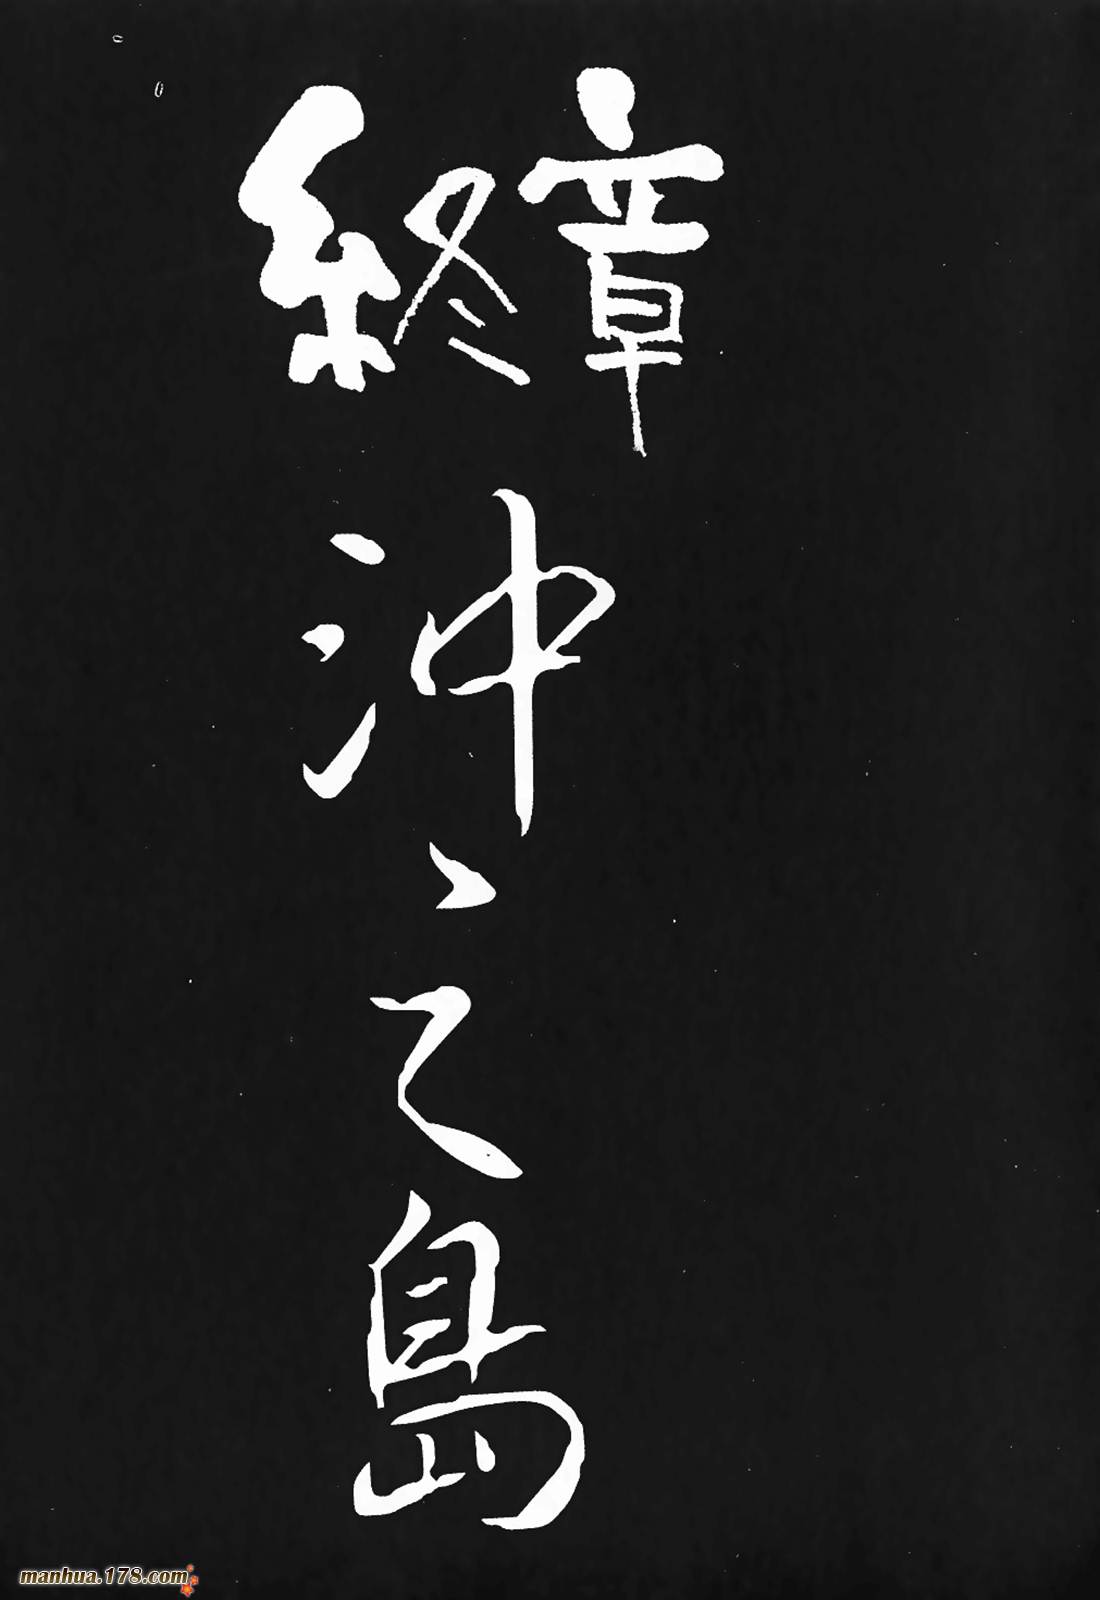 終章
沖之島
manhua.178.com